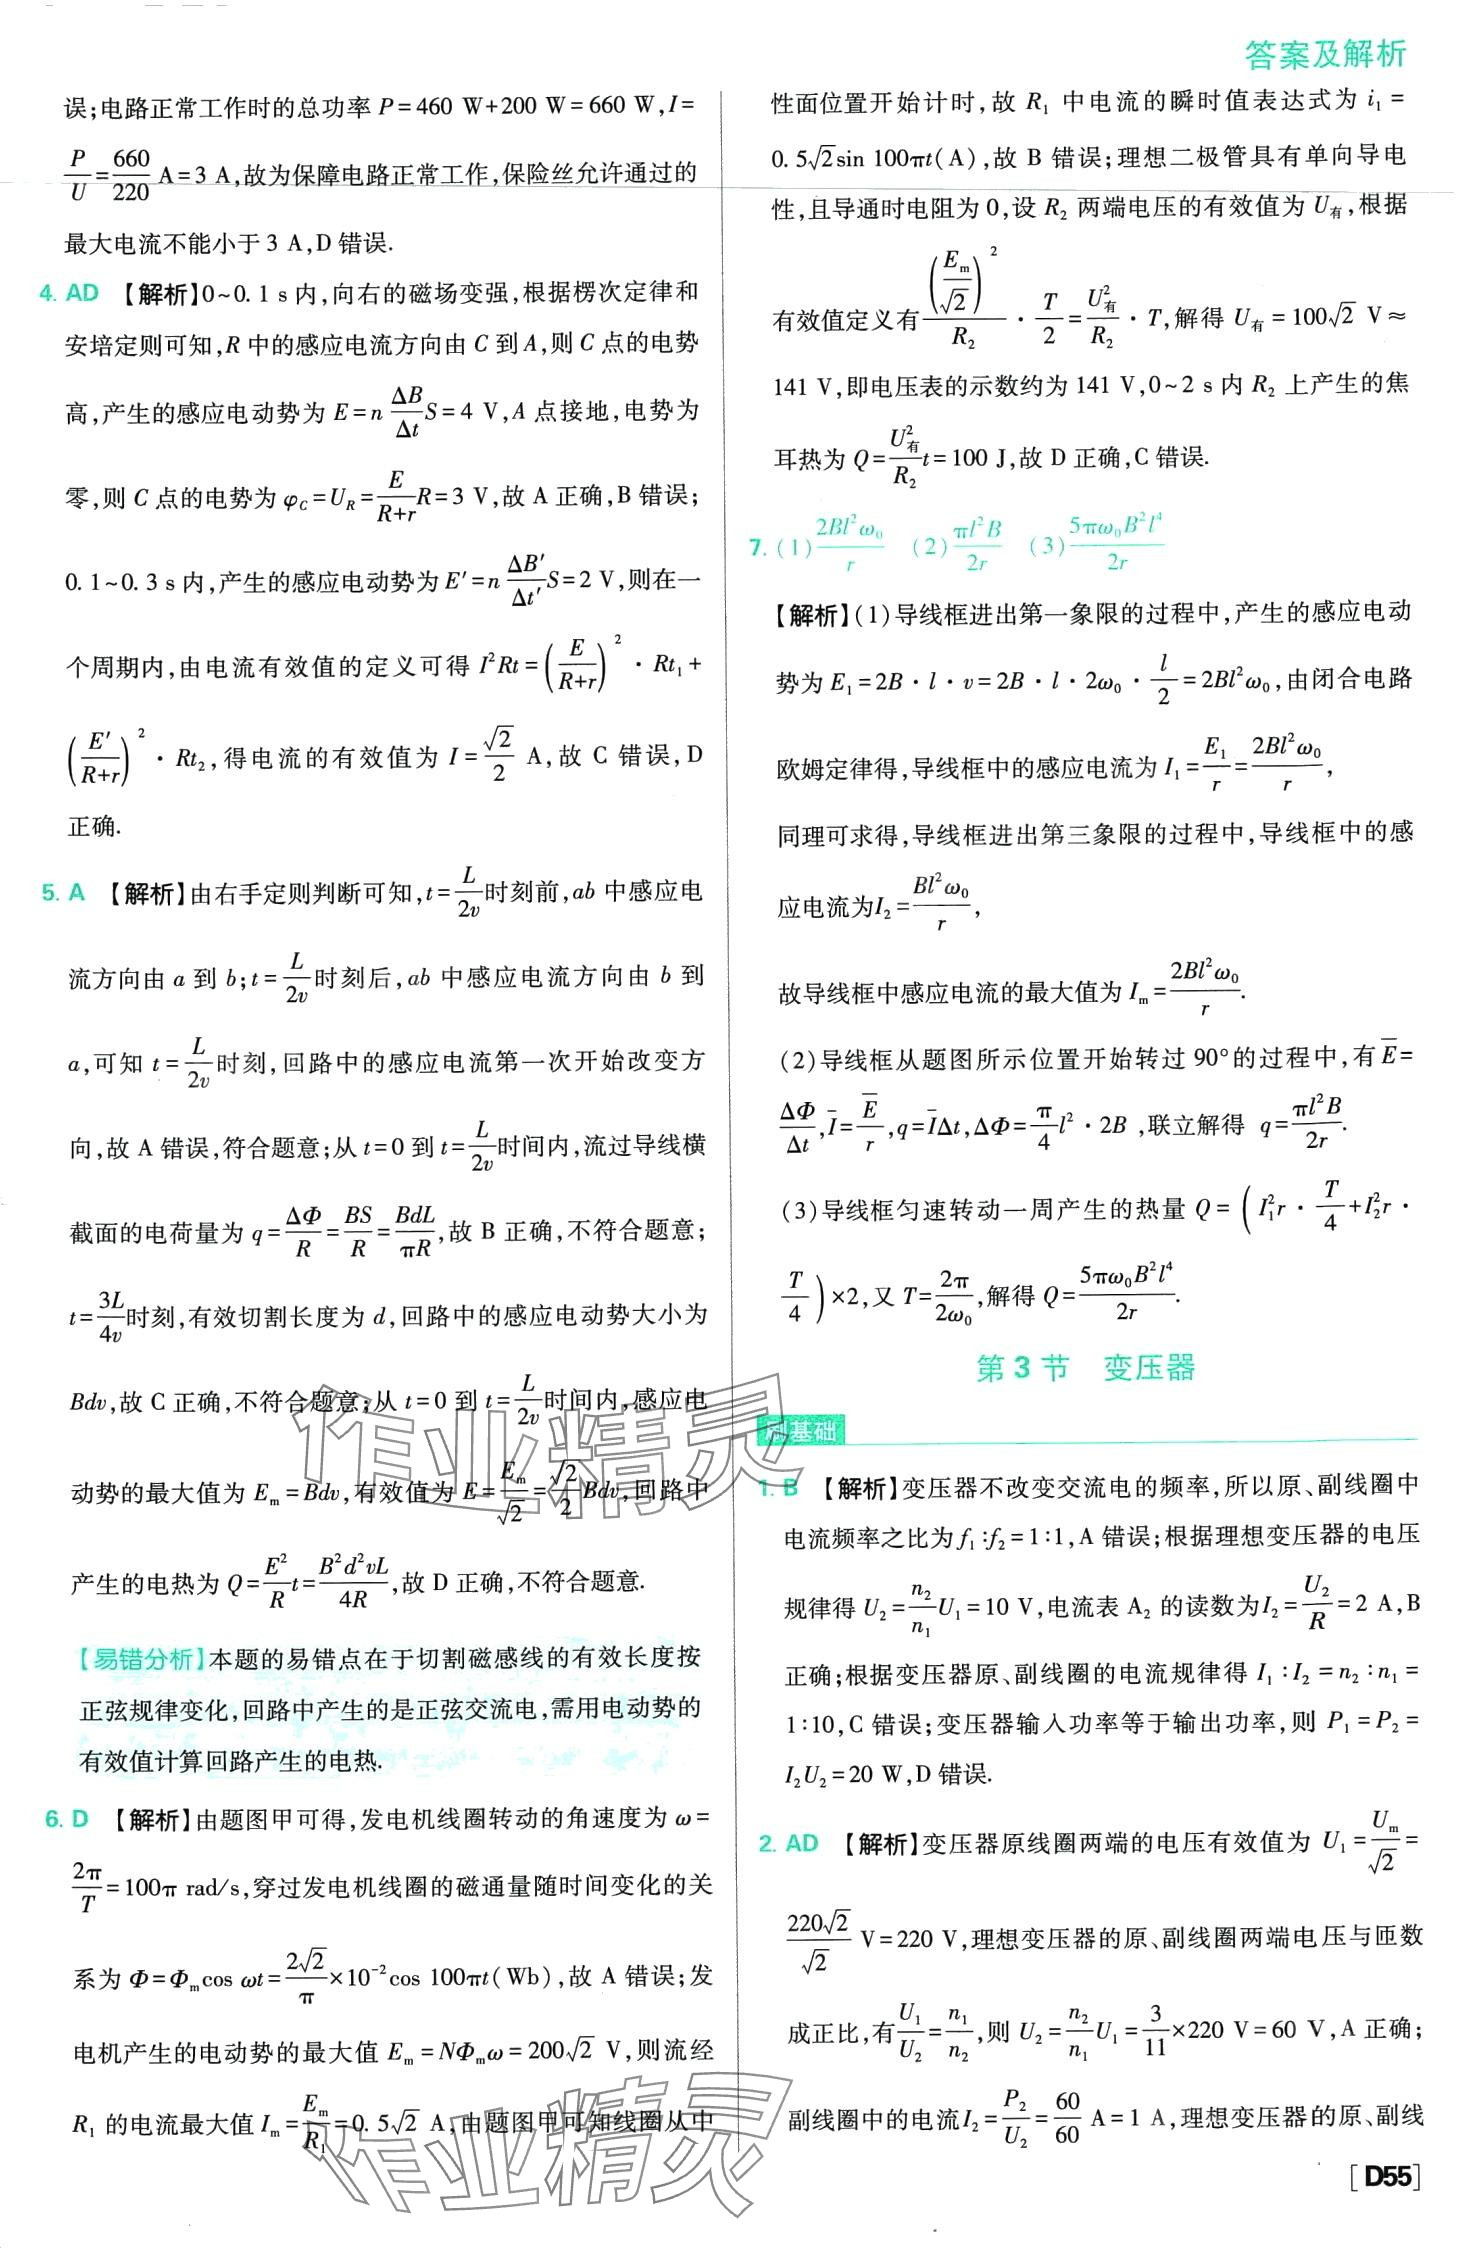 答案及解析
误;电路正常工作时的总功率 P=460 W+200 W=660 W,I=
P/U=660/220 A=3 A,故为保障电路正常工作,保险丝允许通过的
最大电流不能小于 3 A,D 错误.
4. AD 【解析】0~0.1 s 内,向右的磁场变强,根据楞次定律和
安培定则可知,R 中的感应电流方向由 C 到 A,则 C 点的电势
高,产生的感应电动势为 E=n ΔB/Δt S=4 V,A 点接地,电势为
零,则 C 点的电势为 φ_C=U_R=E/(R+r) R=3 V,故 A 正确,B 错误;
0.1~0.3 s 内,产生的感应电动势为 E′=n ΔB′/Δt′ S=2 V,则在一
个周期内,由电流有效值的定义可得 I²Rt=(E/(R+r))²·Rt₁+
(E′/(R+r))²·Rt₂,得电流的有效值为 I=√2/2 A,故 C 错误,D
正确.
5. A 【解析】由右手定则判断可知,t=L/2v 时刻前,ab 中感应电
流方向由 a 到 b;t=L/2v 时刻后,ab 中感应电流方向由 b 到
a,可知 t=L/2v 时刻,回路中的感应电流第一次开始改变方
向,故 A 错误,符合题意;从 t=0 到 t=L/2v 时间内,流过导线横
截面的电荷量为 q=ΔΦ/R=BS/R=BdL/πR,故 B 正确,不符合题意;
t=3L/4v 时刻,有效切割长度为 d,回路中的感应电动势大小为
Bdv,故 C 正确,不符合题意;从 t=0 到 t=L/2v 时间内,感应电
动势的最大值为 E_m=Bdv,有效值为 E=E_m/√2=√2/2 Bdv,回路中
产生的电热为 Q=E²/R t=B²d²vL/4R,故 D 正确,不符合题意.
【易错分析】本题的易错点在于切割磁感线的有效长度按
正弦规律变化,回路中产生的是正弦交流电,需用电动势的
有效值计算回路产生的电热.
6. D 【解析】由题图甲可得,发电机线圈转动的角速度为 ω=
2π/T=100π rad/s,穿过发电机线圈的磁通量随时间变化的关
系为 Φ=Φ_m cos ωt=2√2/π×10⁻² cos 100πt(Wb),故 A 错误;发
电机产生的电动势的最大值 E_m=NΦ_mω=200√2 V,则流经
R₁ 的电流最大值 I_m=E_m/R₁=0.5√2 A,由题图甲可知线圈从中
性面位置开始计时,故 R₁ 中电流的瞬时值表达式为 i₁=
0.5√2 sin 100πt(A),故 B 错误;理想二极管具有单向导电
性,且导通时电阻为 0,设 R₂ 两端电压的有效值为 U有,根据
有效值定义有 (E_m/√2)²/R₂·T/2=U有²/R₂·T,解得 U有=100√2 V≈
141 V,即电压表的示数约为 141 V,0~2 s 内 R₂ 上产生的焦
耳热为 Q=U有²/R₂ t=100 J,故 D 正确,C 错误.
7. (1) 2Bl²ω₀/r (2) πl²B/2r (3) 5πω₀B²l⁴/2r
【解析】(1)导线框进出第一象限的过程中,产生的感应电动
势为 E₁=2B·l·v=2B·l·2ω₀·l/2=2Bl²ω₀,由闭合电路
欧姆定律得,导线框中的感应电流为 I₁=E₁/r=2Bl²ω₀/r,
同理可求得,导线框进出第三象限的过程中,导线框中的感
应电流为 I₂=Bl²ω₀/r,
故导线框中感应电流的最大值为 I_m=2Bl²ω₀/r.
(2)导线框从题图所示位置开始转过 90°的过程中,有 E̅=
ΔΦ/Δt,I̅=E̅/r,q=I̅Δt,ΔΦ=π/4 l²·2B,联立解得 q=πl²B/2r.
(3)导线框匀速转动一周产生的热量 Q=(I₁²r·T/4+I₂²r·
T/4)×2,又 T=2π/2ω₀,解得 Q=5πω₀B²l⁴/2r.
第 3 节 变压器
刷基础
1. B 【解析】变压器不改变交流电的频率,所以原、副线圈中
电流频率之比为 f₁∶f₂=1∶1,A 错误;根据理想变压器的电压
规律得 U₂=n₂/n₁ U₁=10 V,电流表 A₂ 的读数为 I₂=U₂/R=2 A,B
正确;根据变压器原、副线圈的电流规律得 I₁∶I₂=n₂∶n₁=
1∶10,C 错误;变压器输入功率等于输出功率,则 P₁=P₂=
I₂U₂=20 W,D 错误.
2. AD 【解析】变压器原线圈两端的电压有效值为 U₁=U_m/√2=
220√2/√2 V=220 V,理想变压器的原、副线圈两端电压与匝数
成正比,有 U₁/U₂=n₁/n₂,则 U₂=n₂/n₁ U₁=3/11×220 V=60 V,A 正确;
副线圈中的电流 I₂=P₂/U₂=60/60 A=1 A,理想变压器的原、副线
[D55]
作业精灵
作业精灵